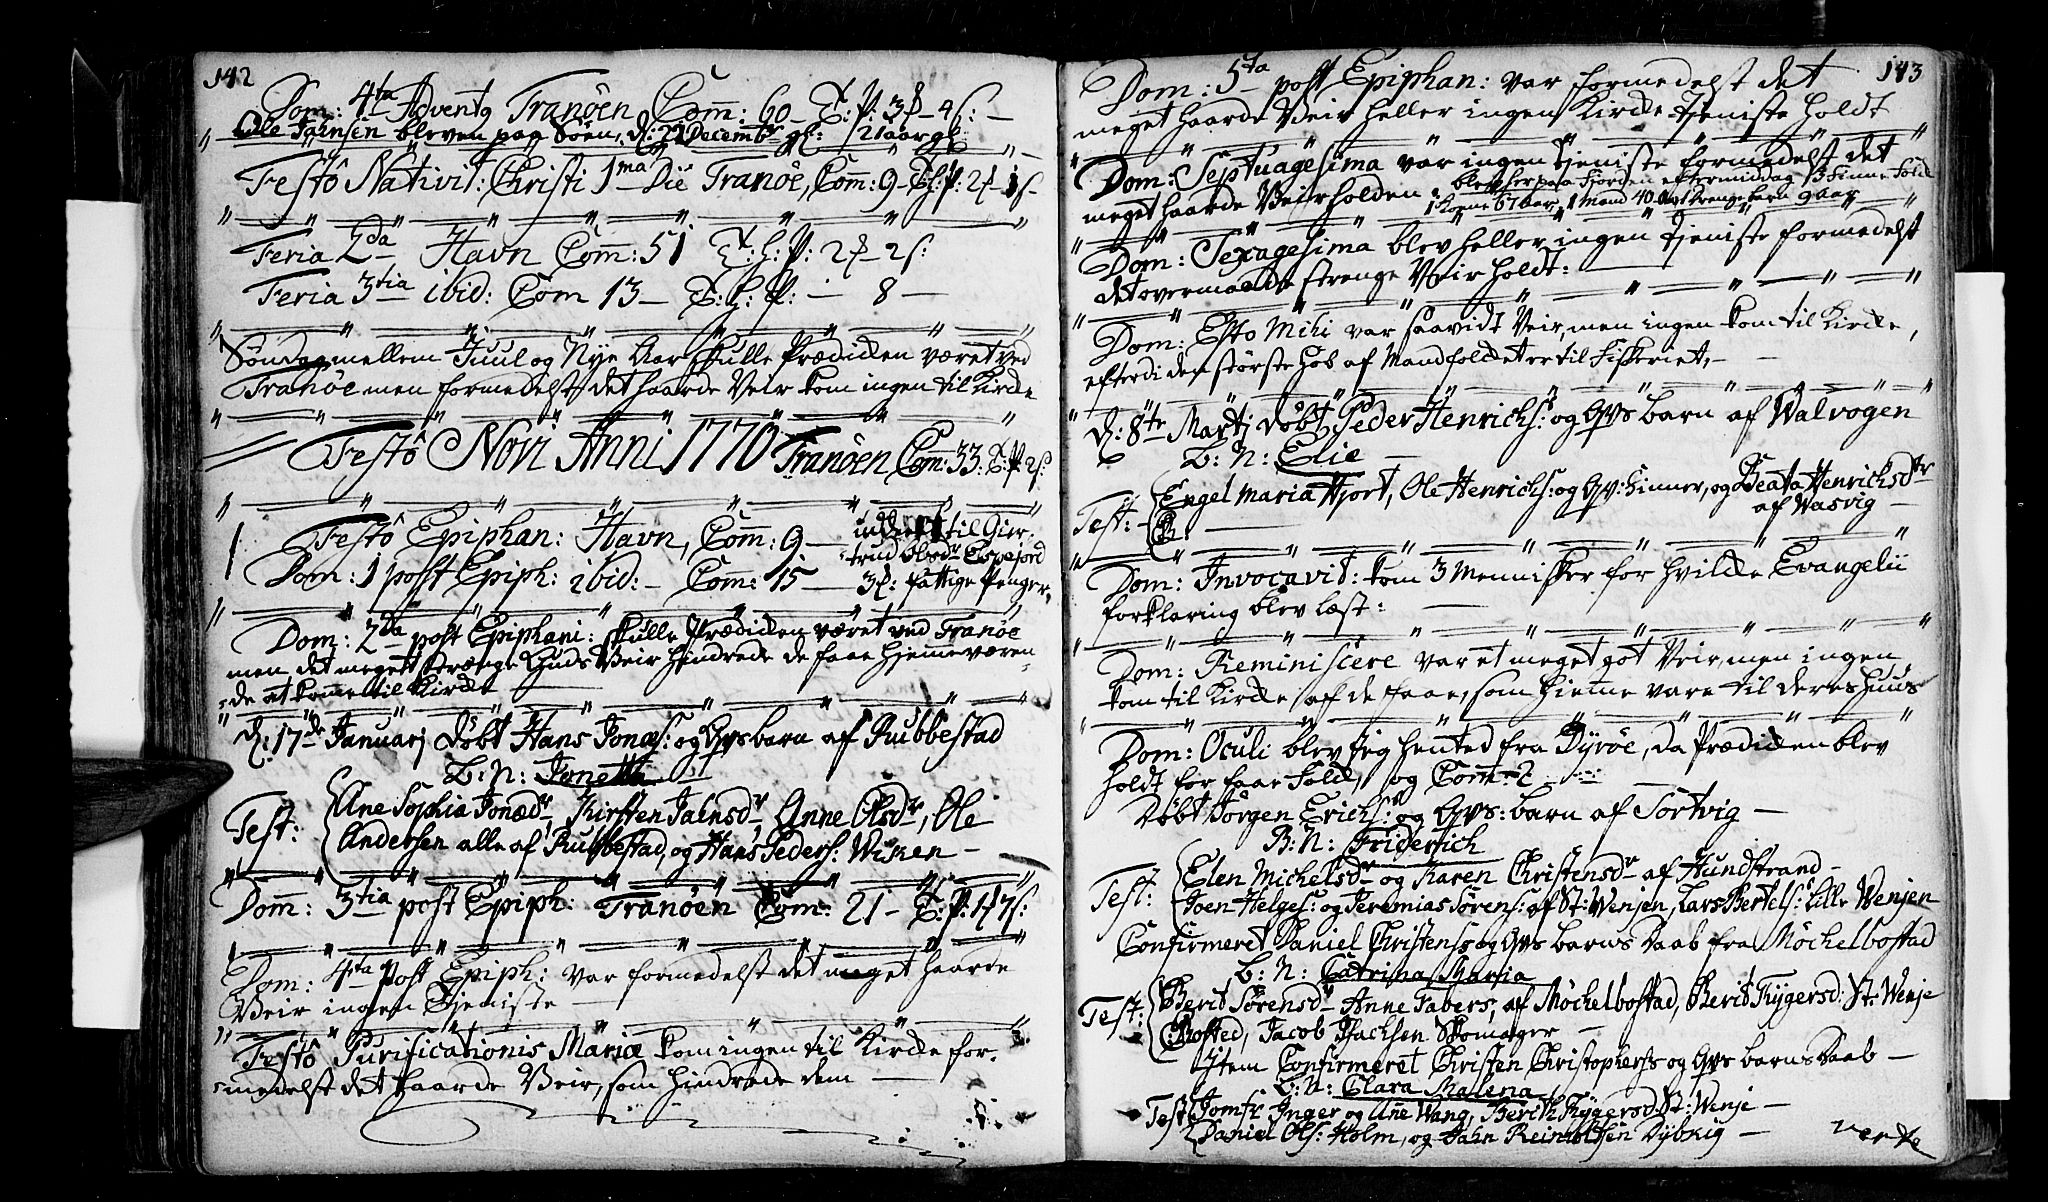 142
Dom: 4ta Advent9 Tranöen Com̄: 60 - T: P: 3 - 4 s: -
Ole Jahnsen bleven paa Söen, d: 22 Decembr gl: 21 aar gl:
Festô Nativit: Christi 1ma Die Tranöe, Com̄: 9 - T: P: 2 1 s -
Feria 2da Havn Com̄: 51 T: h: P: 2 - 2 s:
Feria 3tia ibid: Com 13 - T: h: P: - 8 -
Söndag mellem Juul og Nye Aar skulle Prædicken været ved
Tranöe men formedelst det haarde Veir kom ingen til Kirke
Festô Novi Anni 1770 Tranöen Com̄: 33: T: P: 2 s:
Festô Epiphan: Havn, Com̄: 9 -
Dom: 1 post Epiph: ibid: - Com̄: 15 -
til Gier-
trud Olsdr Espefiord
3 fattige Penger.
Dom: 2da post Epiphani: skulle Prædicken været ved Tranöe
men det meget strænge Guds Veir hindrede de faae hjemmeværen-
=de at komme til Kirke
d: 17de Januarj döbt Hans Jonæs: og Qvs barn af Rubbestad
B: N: Jonetta
Test: Ane Sophia Jonædr, Kirsten Jahnsdr, Anne Olsdr, Ole
Andersen alle af Rubbestad, og Hans Peders: Wiken -
Dom̄: 3tia post Epiph: Tranöen Com: 21 - T: P: 1 7 s:
Dom: 4ta Post Epiph: var formedelst det meget haarde
Veir ingen Tjeniste
Festô Purificationis Mariæ kom ingen til Kirke for-
=medelst det haarde Veir, som hindrede dem
143
Dom: 5ta post Epiphan: var formedelst det
meget haarde Veir heller ingen Kirke tjeniste holdt
Dom: Septuagesima var ingen tjeniste formedelst det
meget haarde Veir holden, blev her paa Fjorden eftermiddag 3 Finne Folk
1 Kone 67 aar, 1 Mand 40 Drenge barn 9 aar
Dom: Sexagesima blev heller ingen tjeniste formedelst
det overmaade strenge Veir holdt:
Dom: Esto Mihi var saavidt Veir, men ingen kom til Kirke,
efterdi den störste hob af Mandfolket er til Fiskeriet, -
d: 8tr Martj döbt Peder Henrichs: og Qvs barn af Walvogen
B: N: Elie -
Test: Engel Maria Hjort, Ole Henrichs: og Qv: hinner, og Beata Henricksdr
af Vasvig -
Dom: Invocavit: kom 3 Mennisker for hvilke Evangelii
forklaring blev læst:
Dom: Reminiscere var et meget got Veir, men ingen
kom til Kirke af de faae, som hieme vare til deres huus
Dom: Oculi blev jeg hented fra Dyröe, da Prædicken blev
holdt for faae Folk, og Com̄: 2
Döbt Jörgen Erichs: og Qvs: barn af Sortvig -
B: N: Friderich
Test: Elen Michelsdr og Karen Christensdr af Hundstrand -
Joen Helges: og Jeremias Sörens: af St: Wenjen, Lars Bertels: Lille Wenjen
Confirmeret Daniel Christens: og Qvs barns Daab fra Möckelbostad
B: N: Catrina Maria
Test: Berit Sörensdr Anne Fabers, af Möchelbostad, Berit Trygersd: St: Wenje
Jacob Isachsen Skomager -
Item Confirmeret Christen Christophers: og Qvs barns Daab -
B: N: Clara Malena
Test Jomfr Inger og Ane Wang, Berith Trygersd: St: Wenje -
Daniel Ols: Holm, og Jahn Reinholtsen Dybvig -